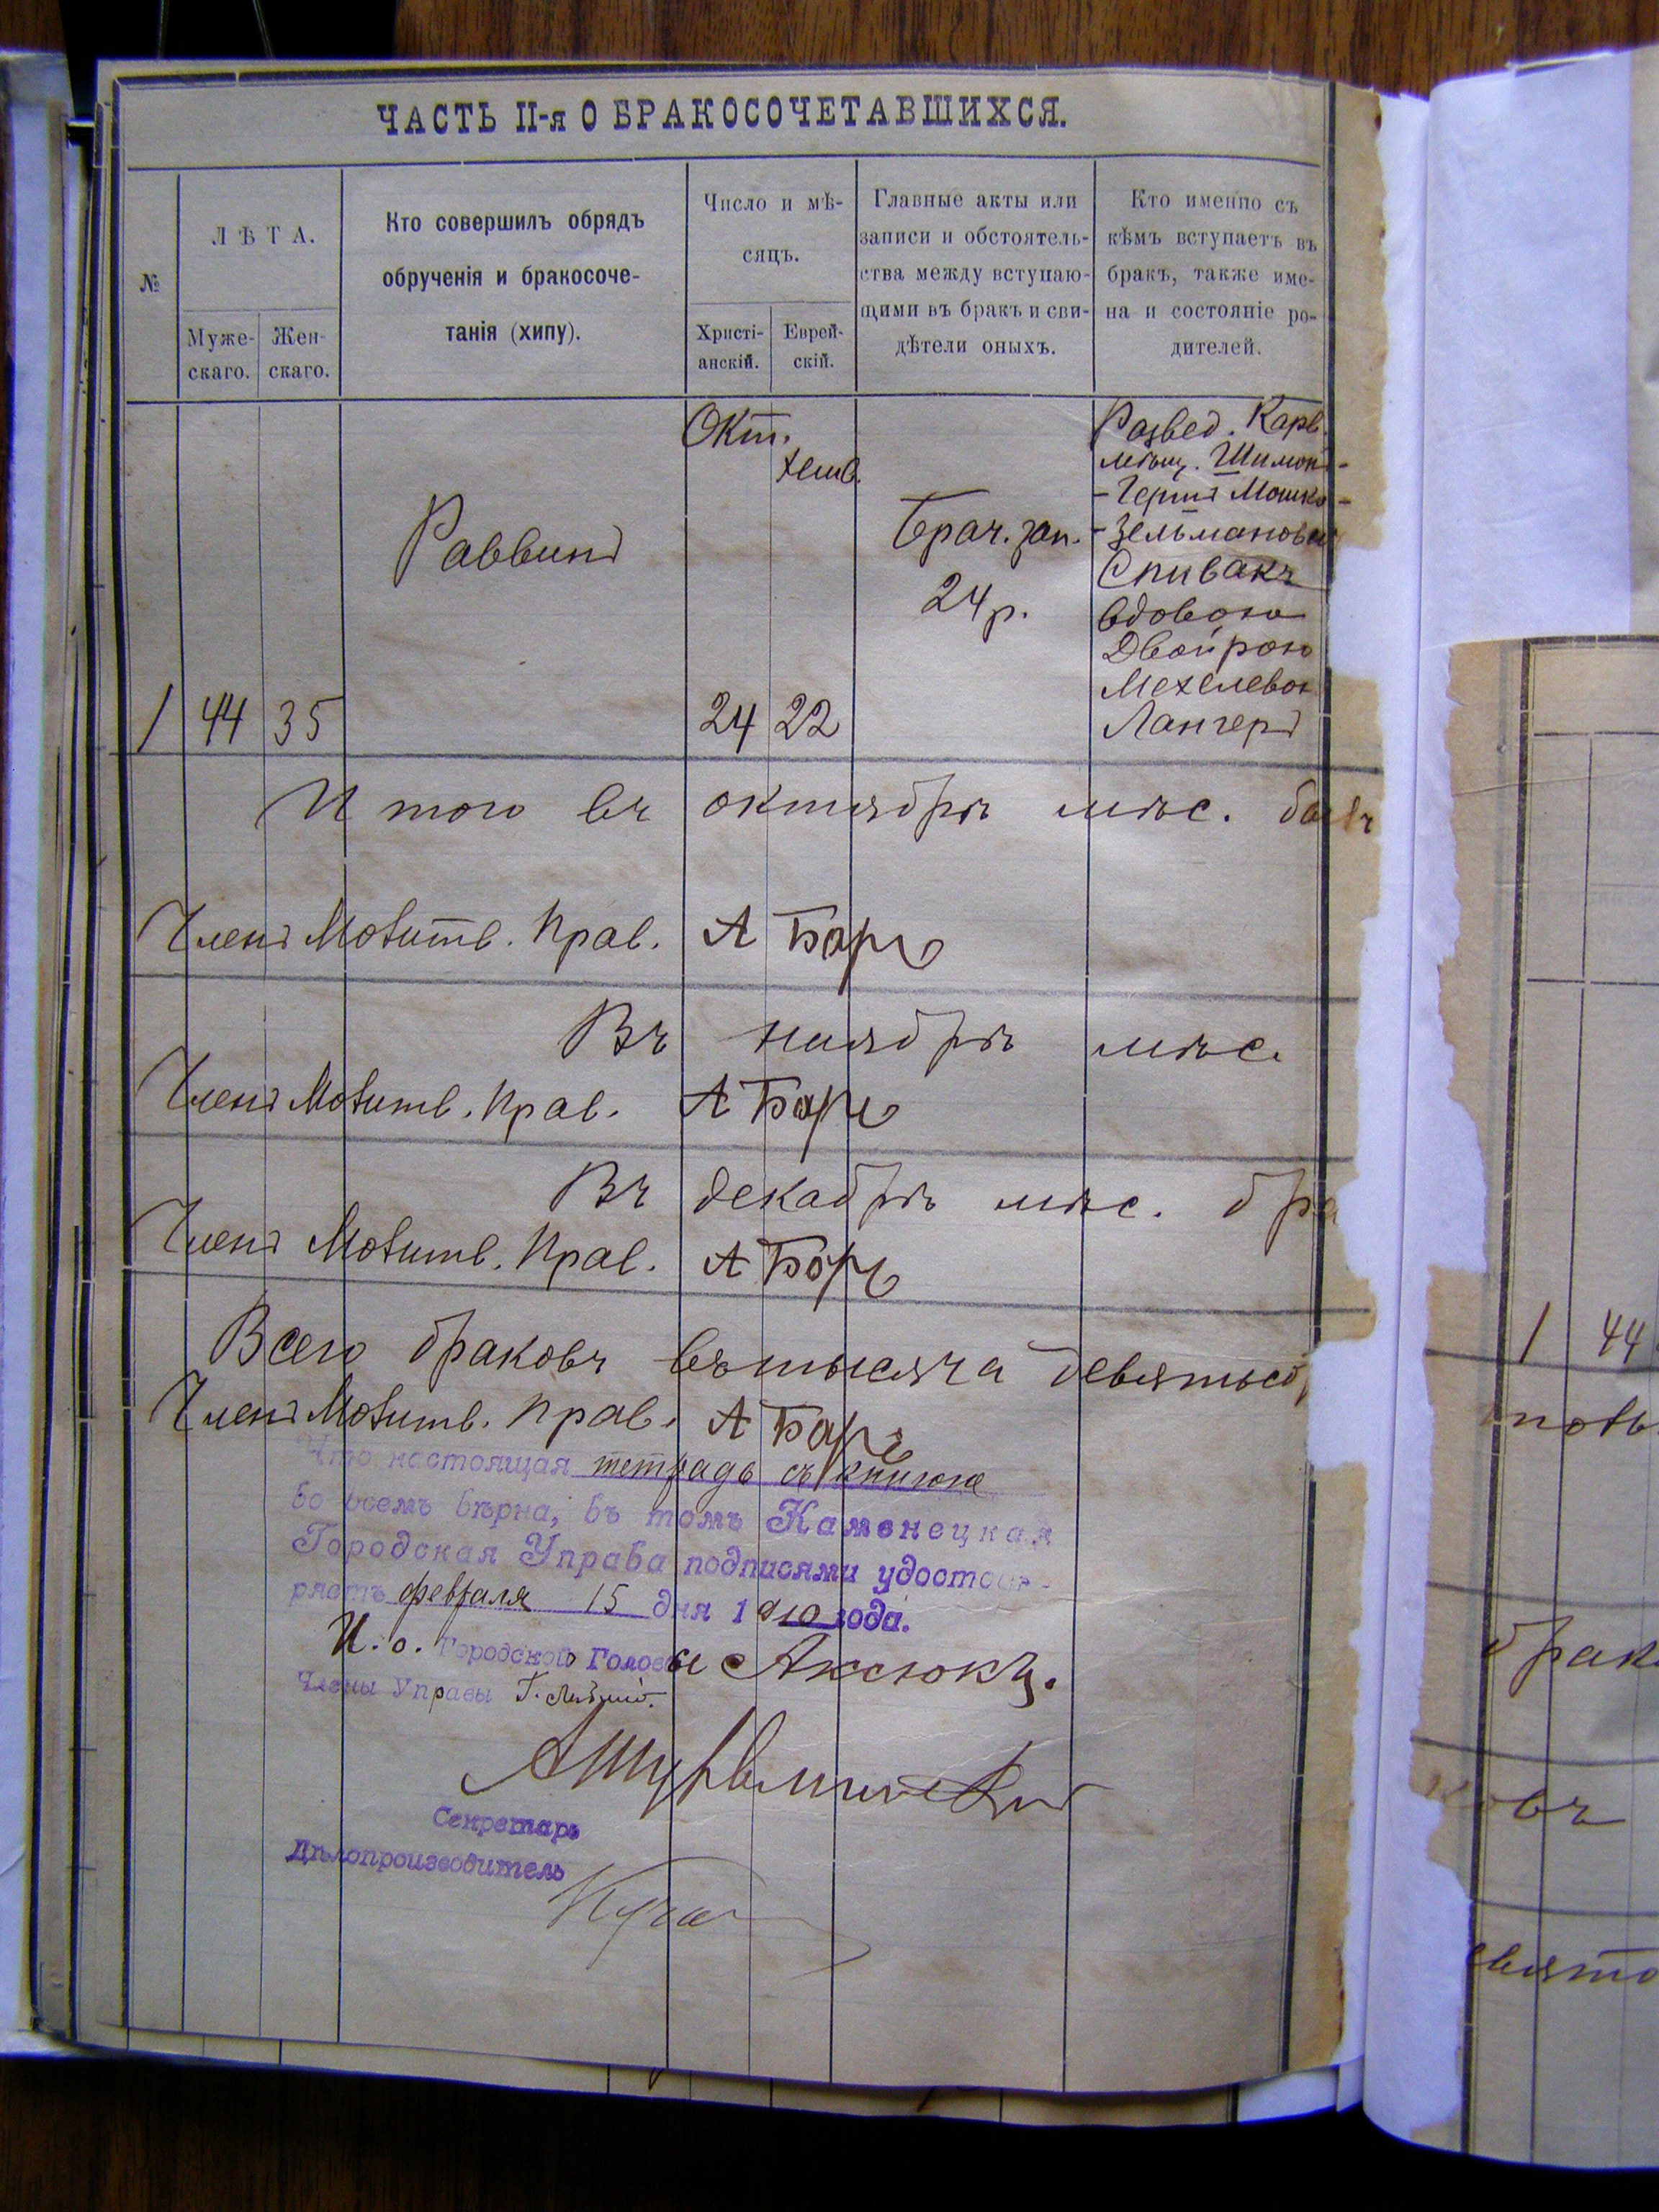 ЧАСТЬ II-я О БРАКОСОЧЕТАВШИХСЯ.
№
ЛѢТА.
Муже-
скаго.
Жен-
скаго.
Кто совершилъ обрядъ
обрученія и бракосоче-
танія (хипу).
Число и мѣ-
сяцъ.
Христі-
анскій.
Еврей-
скій.
Главные акты или
записи и обстоятель-
ства между вступаю-
щими въ бракъ и сви-
дѣтели оныхъ.
Кто именно съ
кѣмъ вступаетъ въ
бракъ, также име-
на и состояніе ро-
дителей.
Окт.
Хешв.
Раввинъ
Брач. зап.
24 р.
Развед. Карв.
мѣщ. Шимон-
-Герша Мошко-
-Зельманович
Спивакъ
вдовою
Двойрою
Мехелевою
Лангеръ
1 44 35 24 22
Итого въ октябрѣ мѣс.
Членъ Молитв. Прав. А Барг
Въ ноябрѣ мѣс.
Членъ Молитв. Прав. А Барг
Въ декабрѣ мѣс. бра
Членъ Молитв. Прав. А Барг
Всего браковъ въ тысяча девятьсо
Членъ Молитв. Прав. А Барг
Что настоящая тетрадь съ книгою
во всемъ вѣрна, въ томъ Каменецкая
Городская Управа подписями удостовѣ-
ряетъ февраля 15 дня 1910 года.
И. о. Городской Головы Аксюкъ.
Члены Управы Г.
Секретарь
Дѣлопроизводитель
1 44
брак
овъ
евято